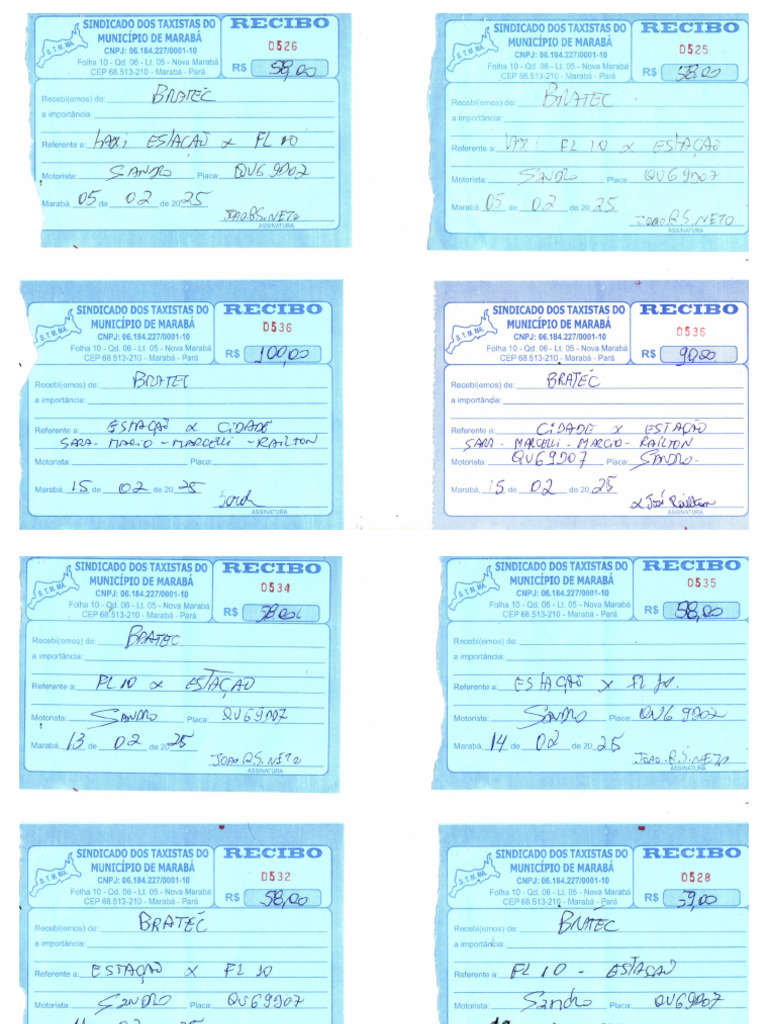 SINDICADO DOS TAXISTAS DO
MUNICÍPIO DE MARABÁ
CNPJ: 06.184.227/0001-10
Folha 10 - Qd. 06 - Lt. 05 - Nova Marabá
CEP 68.513-210 - Marabá - Pará
S. T. M. MA.
RECIBO
0526
R$ 58,00
Recebi(emos) de: BRATEC
a importância:
Referente a: taxi ESTAÇÃO x FL 10
Motorista: SANDRO Placa: QVG9D02
Marabá, 05 de 02 de 2025
JOAO.B.S. NETO
ASSINATURA
SINDICADO DOS TAXISTAS DO
MUNICÍPIO DE MARABÁ
CNPJ: 06.184.227/0001-10
Folha 10 - Qd. 06 - Lt. 05 - Nova Marabá
CEP 68.513-210 - Marabá - Pará
S. T. M. MA.
RECIBO
0525
R$ 58,00
Recebi(emos) de: BRATEC
a importância:
Referente a: TAXI FL 10 x ESTAÇÃO
Motorista: SANDRO Placa: QVG9D07
Marabá, 05 de 02 de 2025
JOAO B.S. NETO
ASSINATURA
SINDICADO DOS TAXISTAS DO
MUNICÍPIO DE MARABÁ
CNPJ: 06.184.227/0001-10
Folha 10 - Qd. 06 - Lt. 05 - Nova Marabá
CEP 68.513-210 - Marabá - Pará
S. T. M. MA.
RECIBO
0536
R$ 100,00
Recebi(emos) de: BRATEC
a importância:
Referente a: ESTAÇÃO x CIDADE
SARA - MARCIO - MARCELLI - RAILTON
Motorista: Placa:
Marabá, 15 de 02 de 2025
ASSINATURA
SINDICADO DOS TAXISTAS DO
MUNICÍPIO DE MARABÁ
CNPJ: 06.184.227/0001-10
Folha 10 - Qd. 06 - Lt. 05 - Nova Marabá
CEP 68.513-210 - Marabá - Pará
S. T. M. MA.
RECIBO
0536
R$ 90,00
Recebi(emos) de: BRATEC
a importância:
Referente a: CIDADE x ESTAÇÃO
SARA - MARCELLI - MARCIO - RAILTON
Motorista: QVG9D07 Placa: SANDRO
Marabá, 15 de 02 de 2025
x José Railton
ASSINATURA
SINDICADO DOS TAXISTAS DO
MUNICÍPIO DE MARABÁ
CNPJ: 06.184.227/0001-10
Folha 10 - Qd. 06 - Lt. 05 - Nova Marabá
CEP 68.513-210 - Marabá - Pará
S. T. M. MA.
RECIBO
0534
R$ 58,00
Recebi(emos) de: BRATEC
a importância:
Referente a: FL 10 x ESTAÇÃO
Motorista: SANDRO Placa: QVG9D07
Marabá, 13 de 02 de 2025
JOAO B.S. NETO
ASSINATURA
SINDICADO DOS TAXISTAS DO
MUNICÍPIO DE MARABÁ
CNPJ: 06.184.227/0001-10
Folha 10 - Qd. 06 - Lt. 05 - Nova Marabá
CEP 68.513-210 - Marabá - Pará
S. T. M. MA.
RECIBO
0535
R$ 58,00
Recebi(emos) de:
a importância:
Referente a: ESTAÇÃO x FL 10.
Motorista: SANDRO Placa: QVG9D02
Marabá, 14 de 02 de 2025
JOAO.B.S. NETO
ASSINATURA
SINDICADO DOS TAXISTAS DO
MUNICÍPIO DE MARABÁ
CNPJ: 06.184.227/0001-10
Folha 10 - Qd. 06 - Lt. 05 - Nova Marabá
CEP 68.513-210 - Marabá - Pará
S. T. M. MA.
RECIBO
0532
R$ 58,00
Recebi(emos) de: BRATEC
a importância:
Referente a: ESTAÇÃO x FL 10
Motorista: SANDRO Placa: QVG9D07
SINDICADO DOS TAXISTAS DO
MUNICÍPIO DE MARABÁ
CNPJ: 06.184.227/0001-10
Folha 10 - Qd. 06 - Lt. 05 - Nova Marabá
CEP 68.513-210 - Marabá - Pará
S. T. M. MA.
RECIBO
0528
R$ 59,00
Recebi(emos) de: BRATEC
a importância:
Referente a: FL 10 - ESTAÇÃO
Motorista: Sandro Placa: QVG9D07